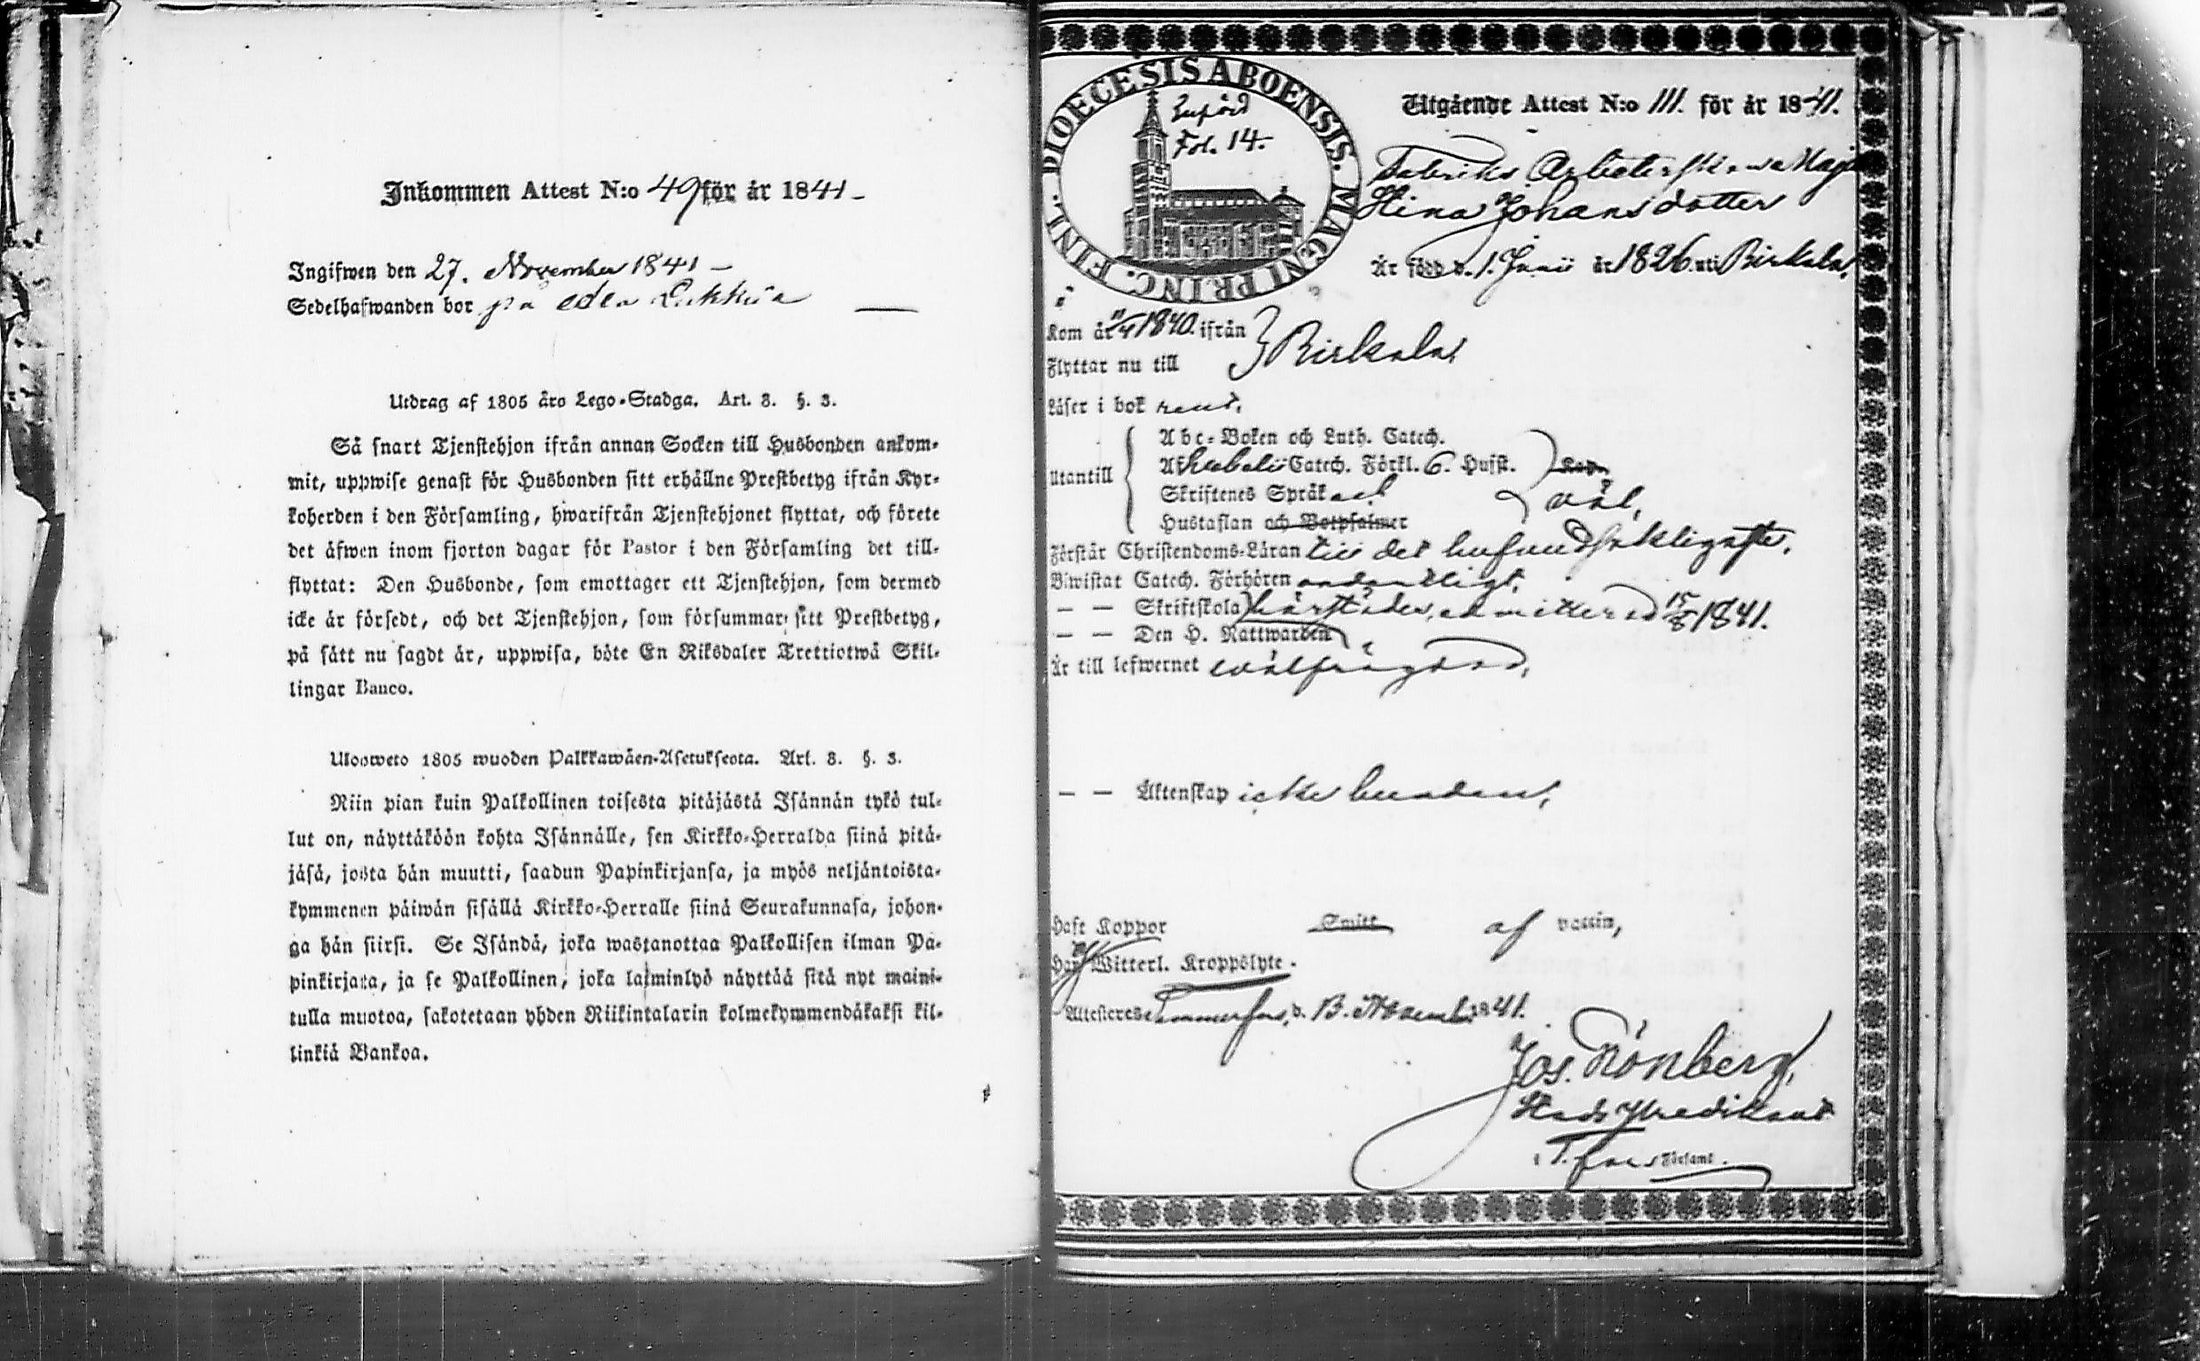 Inkommen Attest N:o 49 för år 1841
Ingifwen den 27. November 1841 –
Sedelhafwanden bor på
Utdrag af 1805 års Lego-Stadga. Art. 3. §. 3.
Så snart Tjenstehjon ifrån annan Socken till Husbonden ankom-
mit, uppwise genast för Husbonden sitt erhållne Prestbetyg ifrån Kyr-
koherden i den Församling, hwarifrån Tjenstehjonet flyttat, och förete
det äfwen inom fjorton dagar för Pastor i den Församling det till-
flyttat: Den Husbonde, som emottager ett Tjenstehjon, som dermed
icke är försedt, och det Tjenstehjon, som försummar sitt Prestbetyg,
på sätt nu sagdt är, uppwisa, böte En Riksdaler Trettiotwå Skil-
lingar Banco.
Ulosweto 1805 wuoden Palkkawäen-Asetuksesta. Art. 3. §. 3.
Niin pian kuin Palkollinen toisesta pitäjästä Isännän tykö tul-
lut on, näyttäköön kohta Isännälle, sen Kirkko-Herralda siinä pitä-
jäsä, josta hän muutti, saadun Papinkirjansa, ja myös neljäntoista-
kymmenen päiwän sisällä Kirkko-Herralle siinä Seurakunnasa, johon-
ga hän siirsi. Se Isändä, joka wastanottaa Palkollisen ilman Pa-
pinkirjata, ja se Palkollinen, joka laiminlyö näyttää sitä nyt maini-
tulla muotoa, sakotetaan yhden Riikintalarin kolmekymmendäkaksi kil-
linkiä Bankoa.
DIOECESIS ABOENSIS. MAGNI PRINC. FINL.
Införd
Fol. 14.
Utgående Attest N:o 111. för år 1841.
Fabriks Arbeterskan Maja
Stina Johansdotter
Är född d. 1. Junii år 1826. uti Birkala,
Kom år 1840. ifrån
Flyttar nu till } Birkala,
Läser i bok rent,
Utantill
Abc-Boken och Luth. Catech.
Af Svebelii Catech. Förkl. 6. Hufst.
Skriftenes Språk och
Hustaflan och Botpsalmer
väl,
Förstår Christendoms-Läran till det hufvudsakligaste,
Biwistat Catech. Förhören ordentligt,
– – Skriftskola härstädes, admitterad 15/8 1841.
– – Den H. Nattwarden
Är till lefwernet välfrägdad,
– – Äktenskap icke bunden,
Haft Koppor Smitt af vaccin,
Har Witterl. Kroppslyte.
Attesteres Tammerfors, d. 13. Novemb. 1841.
Jos. Grönberg,
Stads Predikant
i T. fors Församl.